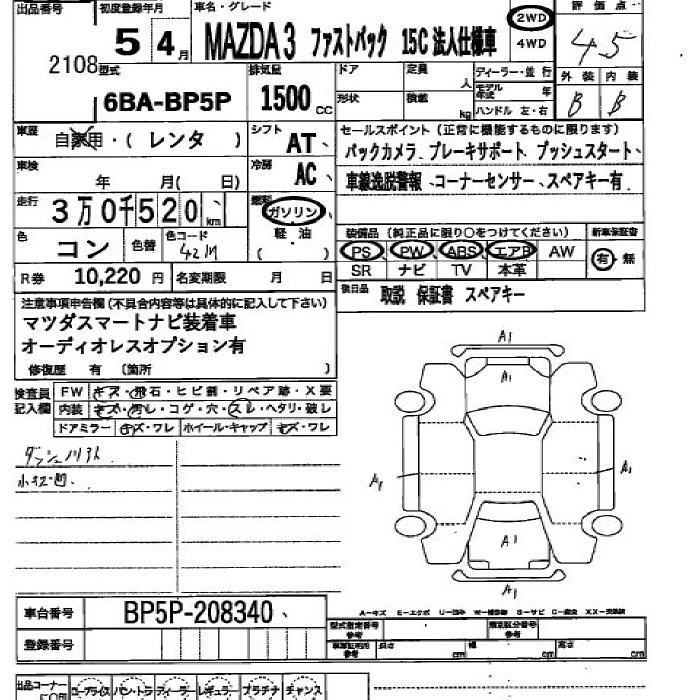 出品番号 初度登録年月 車名・グレード 評価点
2108 5 4月 MAZDA3 ファストバック 15C 法人仕様車 2WD 4WD 4.5
型式 排気量 ドア 定員 人 ディーラー・並行 外装 内装
6BA-BP5P 1500cc 形状 積載 kg モデル年式 年 B B
ハンドル 左・右
車歴 自家用・(レンタ) シフト AT、 セールスポイント(正常に機能するものに限ります)
バックカメラ、ブレーキサポート、プッシュスタート、
車検 年 月(日) 冷房 AC、 車線逸脱警報、コーナーセンサー、スペアキー有
走行 3万0千520km 燃料 ガソリン 軽・油 ( )
装備品(純正品に限り○をつけてください) 新車保証書
色 コン 色替 色コード PS PW ABS エアB AW 有・無
SR ナビ TV 本革
R券 10,220円 名変期限 月 日 後日品 取説 保証書 スペアキー
注意事項申告欄(不具合内容等は具体的に記入して下さい)
マツダスマートナビ装着車
オーディオレスオプション有
修復歴 有 (箇所 )
検査員記入欄 FW キズ・飛石・ヒビ割・リペア跡・X要
内装 キズ・汚レ・コゲ・穴・スレ・ヘタリ・破レ
ドアミラー キズ・ワレ ホイール・キャップ キズ・ワレ
A1
A1
A1 A1
A1
A1
車台番号 BP5P-208340、
A-キズ E-エクボ
型式指定番号 参考 類別区分番号 参考
登録番号 長さ cm 幅 cm 高さ cm
出品コーナー コープライス バントラ ディーラー レギュラー プラチナ チャンス